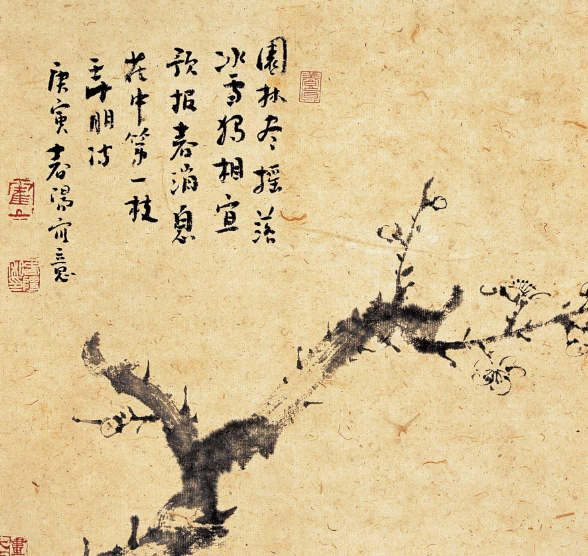 園林尽摇落
冰雪独相宜
预报春消息
花中第一枝
王十朋诗
庚寅春